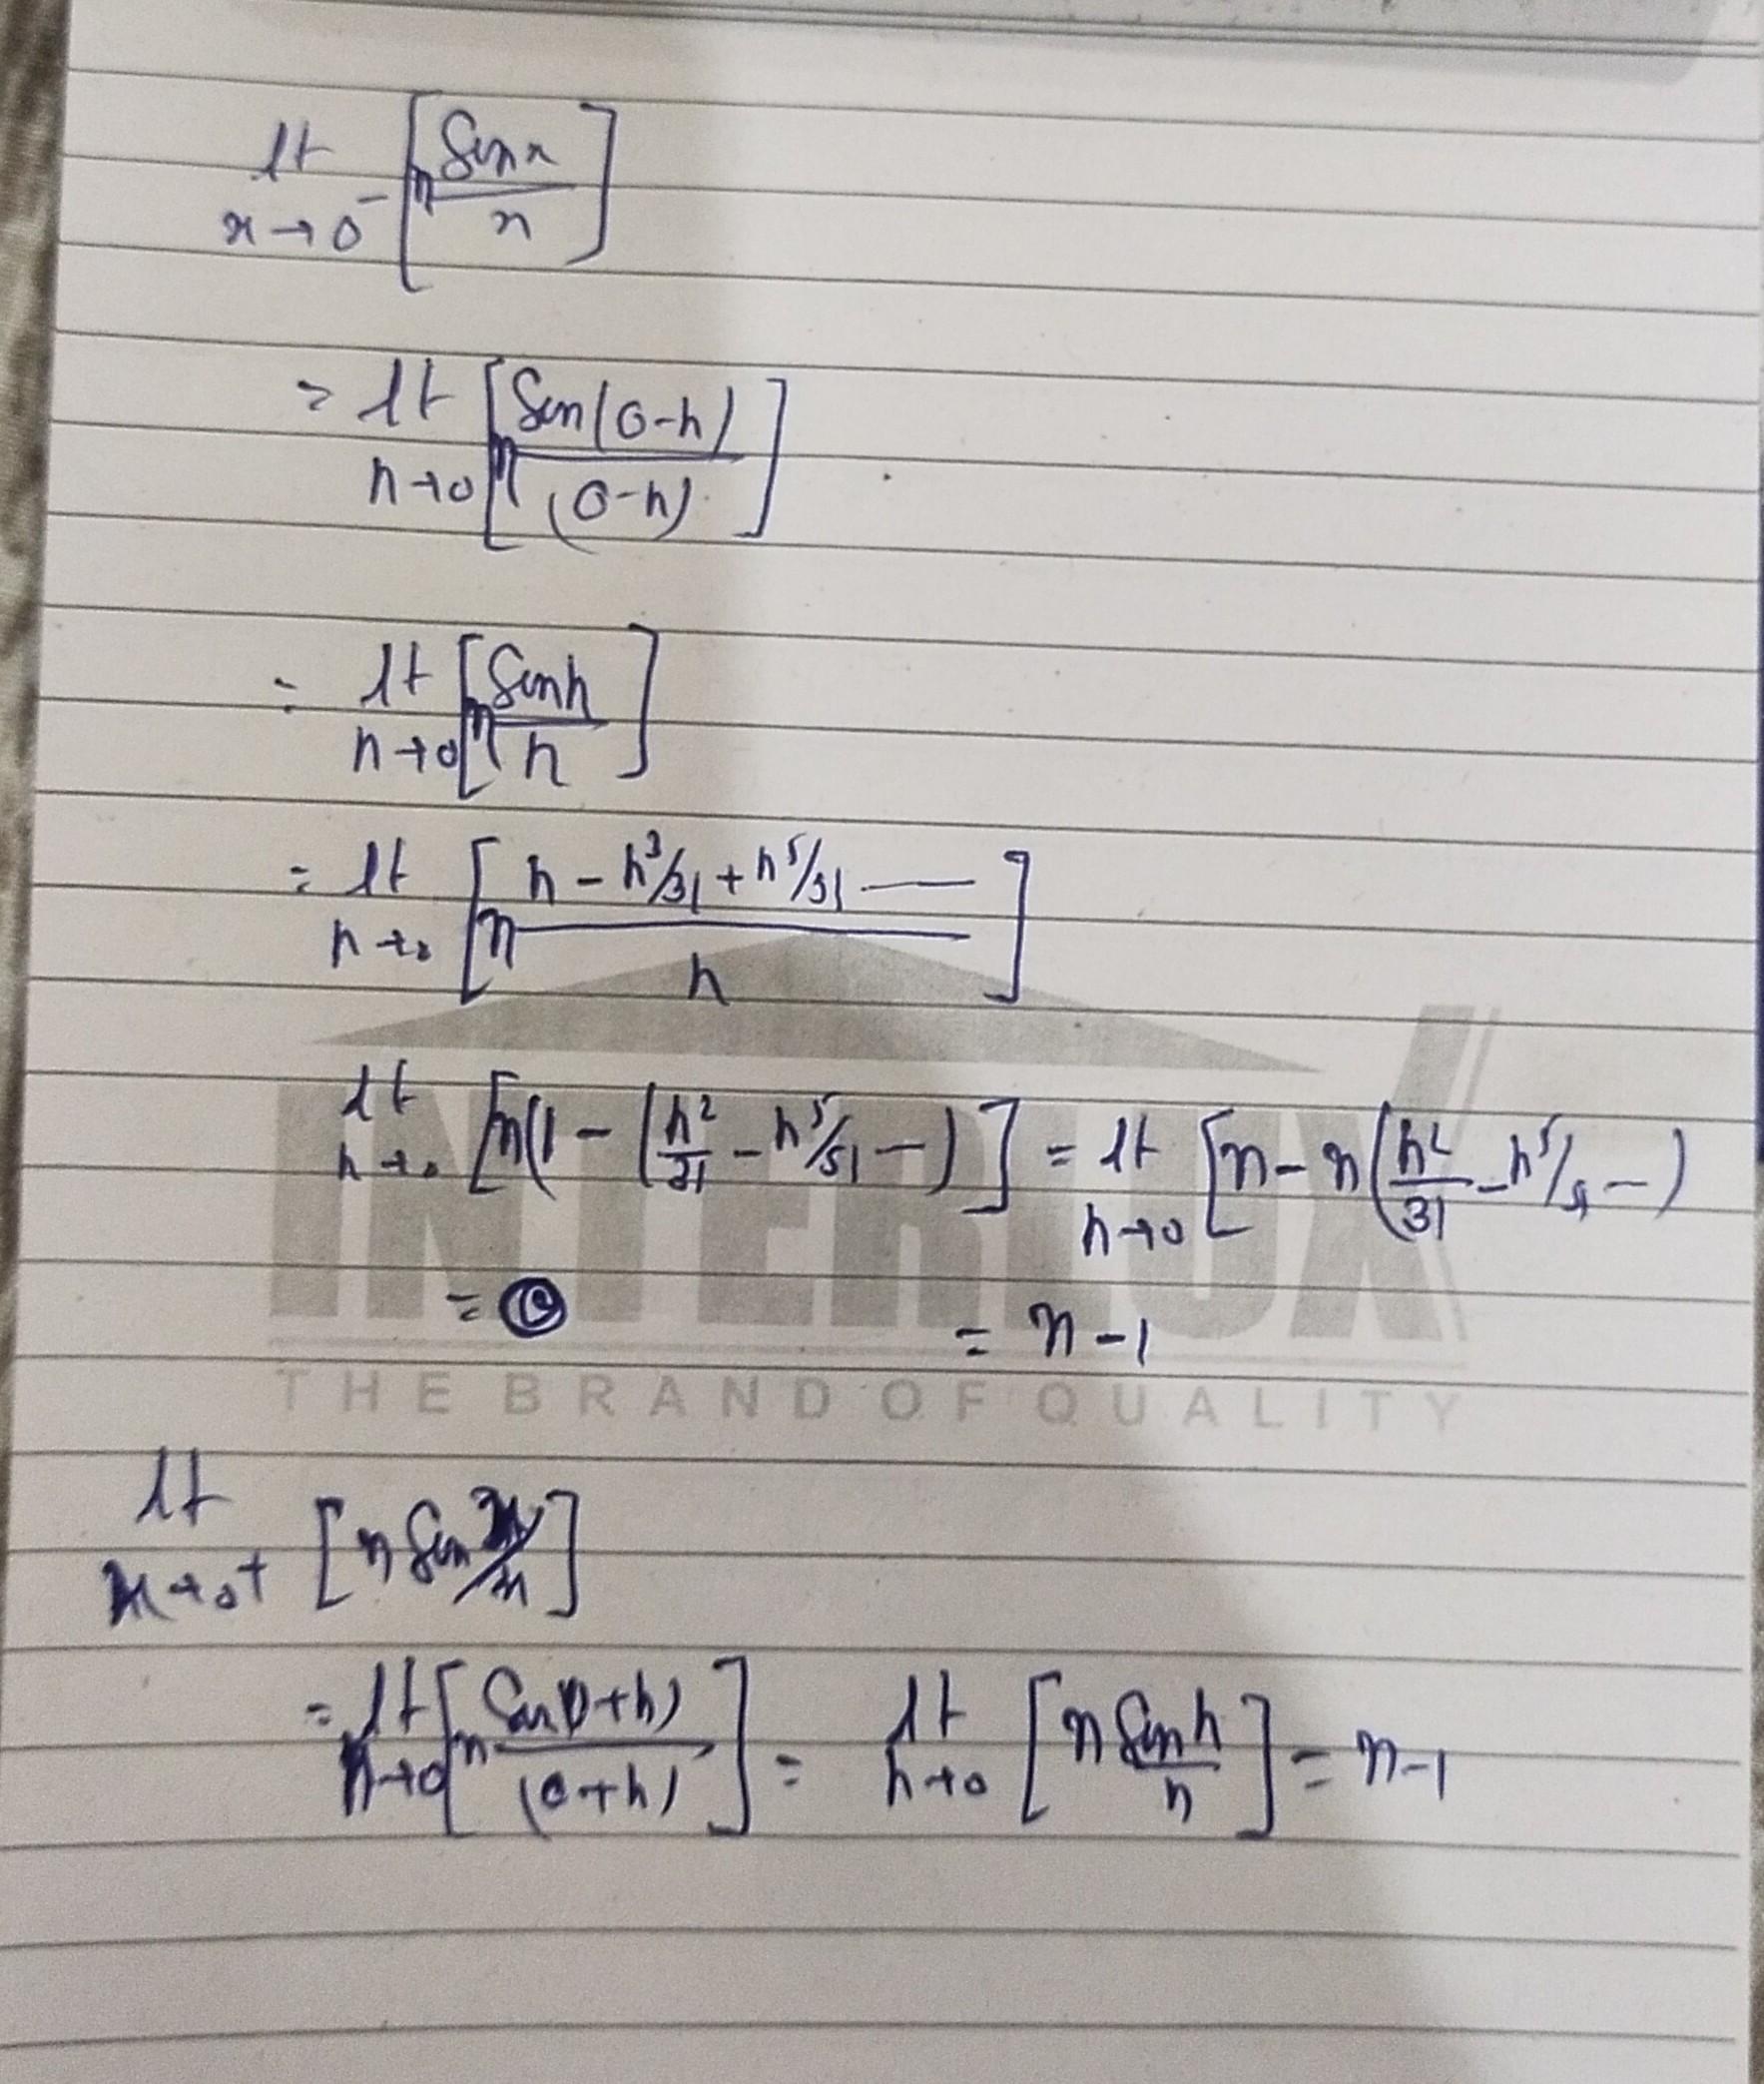 lt x→0⁻ [n sin x / x]
= lt h→0 [n sin(0-h) / (0-h)]
= lt h→0 [n sin h / h]
= lt h→0 [n (h - h³/3! + h⁵/5! —) / h]
lt h→0 [n(1 - (h²/3! - h⁵/5! —)] = lt h→0 [n - n(h²/3! - h⁵/5! —)
= n-1
INTERLUX
THE BRAND OF QUALITY
lt x→0+ [n sin x/x]
= lt h→0 [n sin(0+h) / (0+h)] = lt h→0 [n sin h / h] = n-1